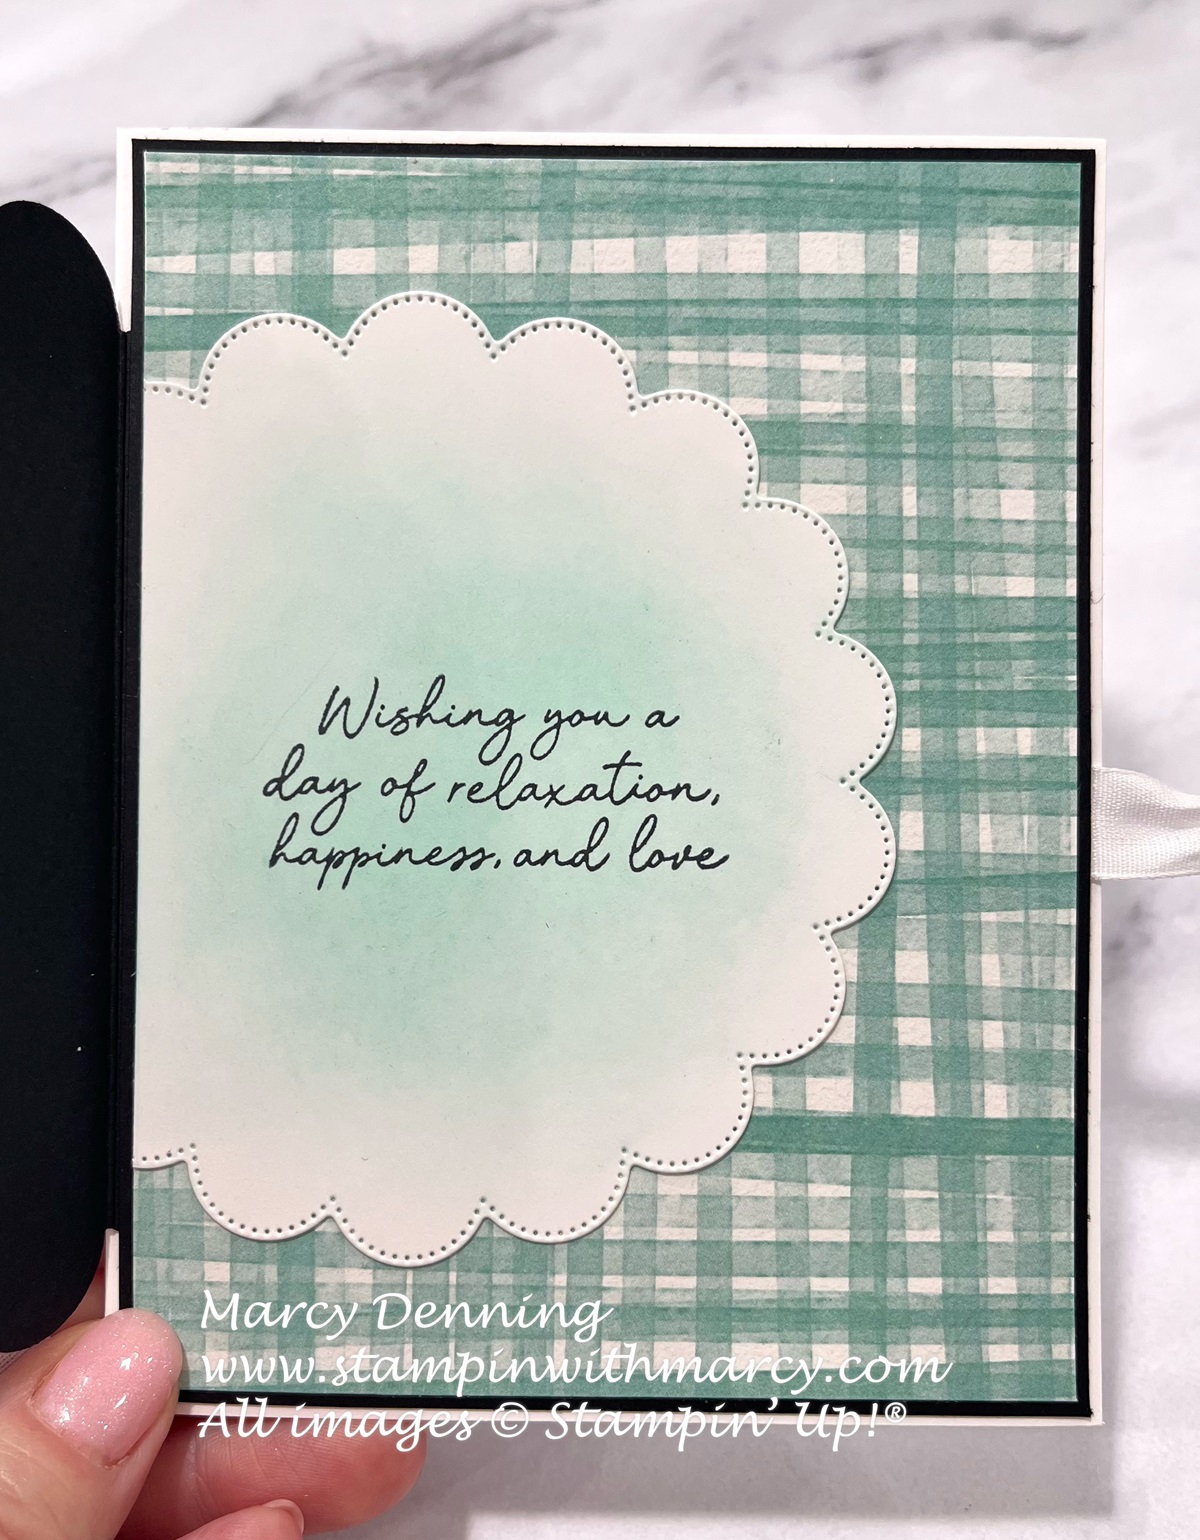 Wishing you a
day of relaxation,
happiness, and love
Marcy Denning
www.stampinwithmarcy.com
All images © Stampin' Up!®